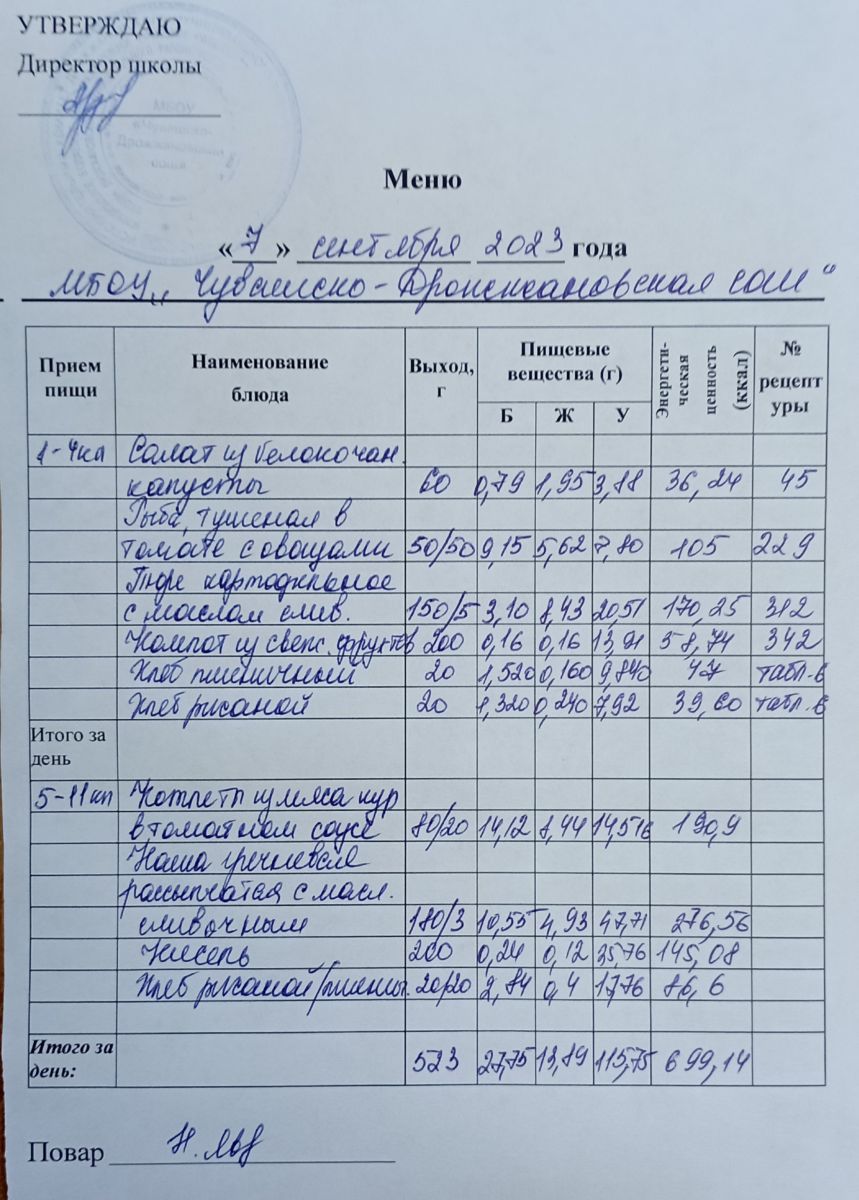 УТВЕРЖДАЮ
Директор школы
МБОУ
Меню
« 7 » сентября 2023 года
МБОУ „Чувашско-Дрожжановская сош"
Прием пищи Наименование блюда Выход, г Пищевые вещества (г) Б Ж У Энергети-ческая ценность (ккал) № рецептуры
1-4кл Салат из белокочан.
капусты 60 0,79 1,95 3,88 36,24 45
Рыба, тушеная в
томате с овощами 50/50 9,15 5,62 7,80 105 229
Пюре картофельное
с маслом слив. 150/5 3,10 8,43 20,51 170,25 312
Компот из свеж. фруктов 200 0,16 0,16 13,91 58,74 342
Хлеб пшеничный 20 1,520 0,160 9,840 47 табл-6
Хлеб ржаной 20 1,320 0,240 7,92 39,60 табл-6
Итого за
день
5-11кл Котлеты из мяса кур
в томатном соусе 80/20 14,12 8,44 14,516 190,9
Каша гречневая
рассыпчатая с масл.
сливочным 180/3 10,55 4,93 47,71 276,56
Кисель 200 0,24 0,12 35,76 145,08
Хлеб ржаной/пшенич. 20/20 2,84 0,4 17,76 86,6
Итого за
день: 523 27,75 13,89 115,75 699,14
Повар